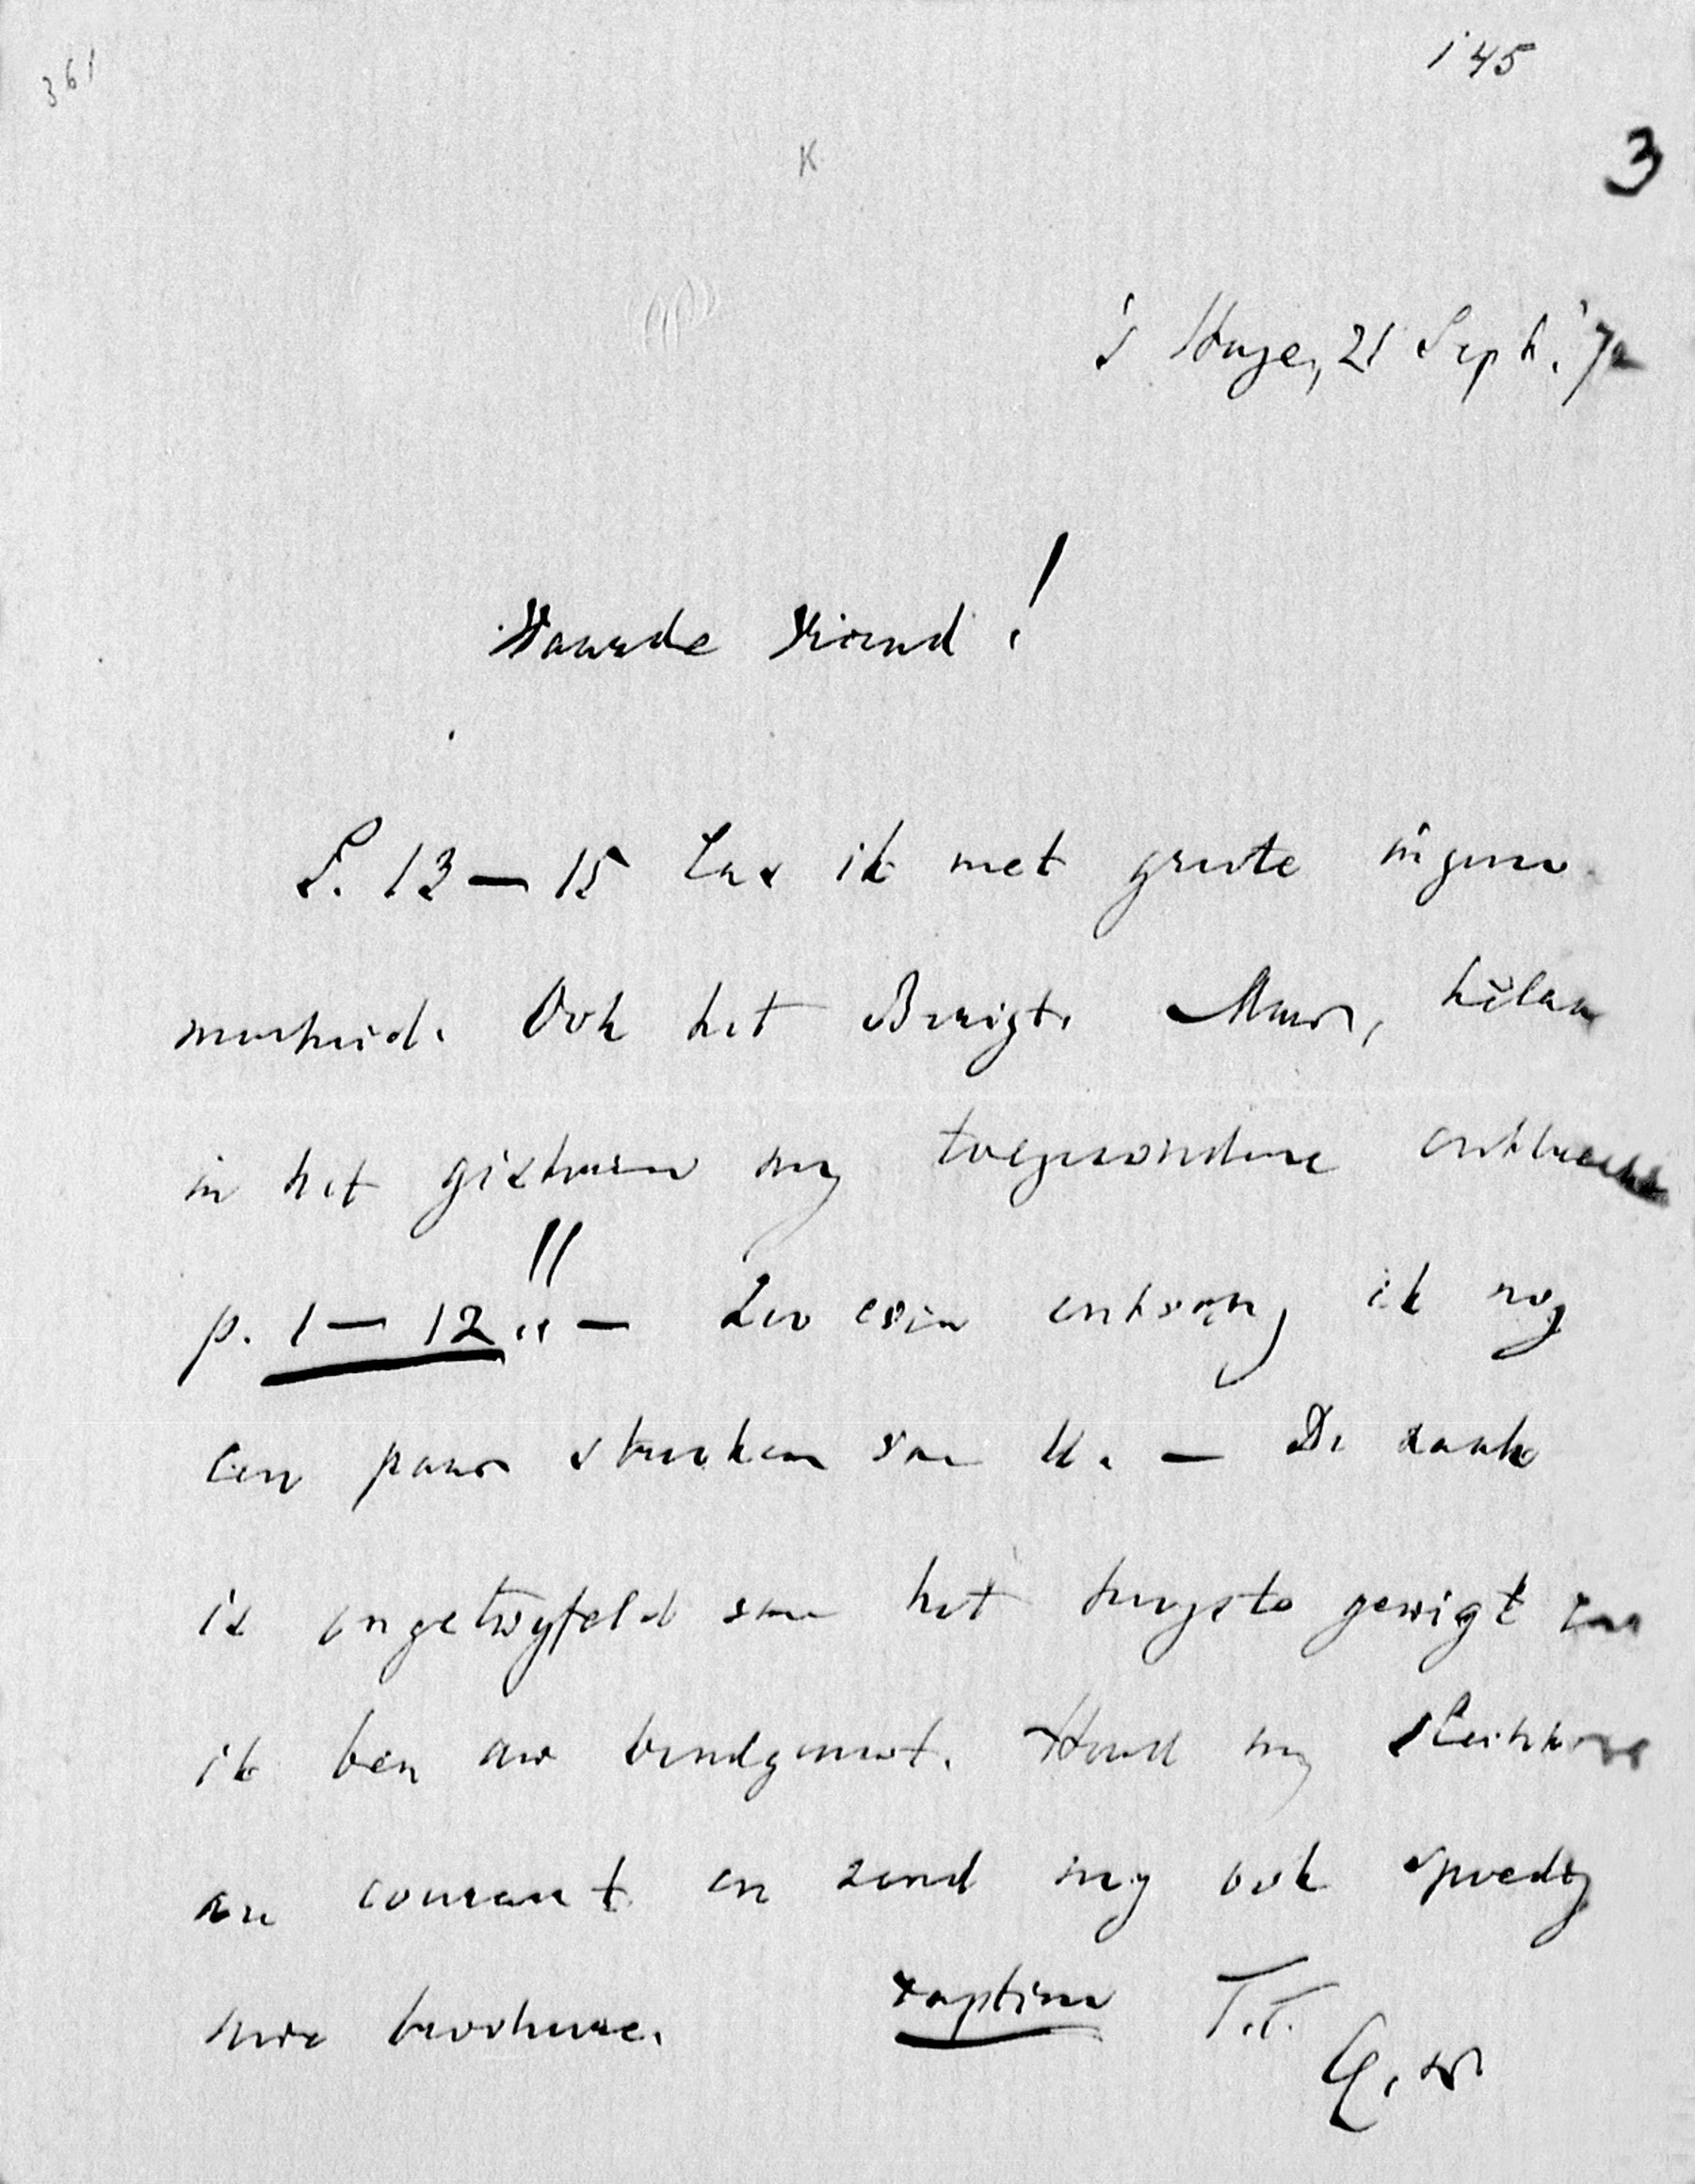 361
145
K
3
's Hage, 21 Sept. '72
Waarde Vriend!
S. 13 — 15 las ik met groote ingeno-
menheid. Ook het Berigt. Maar, hélas
in het gisteren my toegezondene ontbreekt
p. 1 — 12!! — Zoo even ontvang ik nog
een paar stukken van U. — De zaak
is ongetwyfeld van het hoogste gewigt en
ik ben uw bondgenoot. Houd my
au courant en zend my ook spoedig
uwe brochure. raptim T.T.